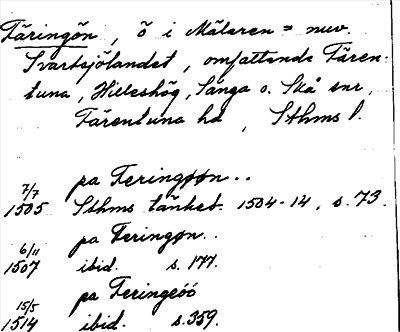 Färingön, ö i Mälaren = nuv.
Svartsjölandet, omfattande Fären-
tuna, Hilleshög, Sånga o. Skå snr,
Färentuna hd, Sthms l.
7/7 pa Feringøøn..
1505 Sthms tänkeb. 1504-14, s. 73.
6/11 pa Feringøn..
1507 ibid. s. 177.
15/5 pa Feringeöö
1514 ibid. s. 359.